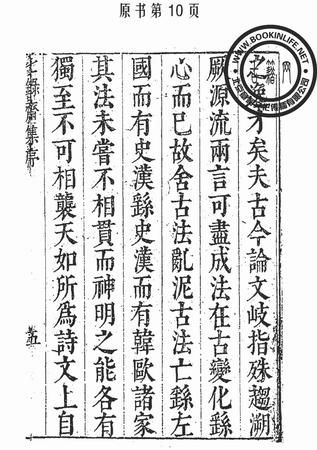 原书第10页
之逸才矣夫古今論文岐指殊趨溯
厥源流兩言可盡成法在古變化繇
心而已故舍古法亂泥古法亡繇左
國而有史漢繇史漢而有韓歐諸家
其法未嘗不相貫而神明之能各有
獨至不可相襲天如所爲詩文上自
七錄齋集序
五
WWW.BOOKINLIFE.NET